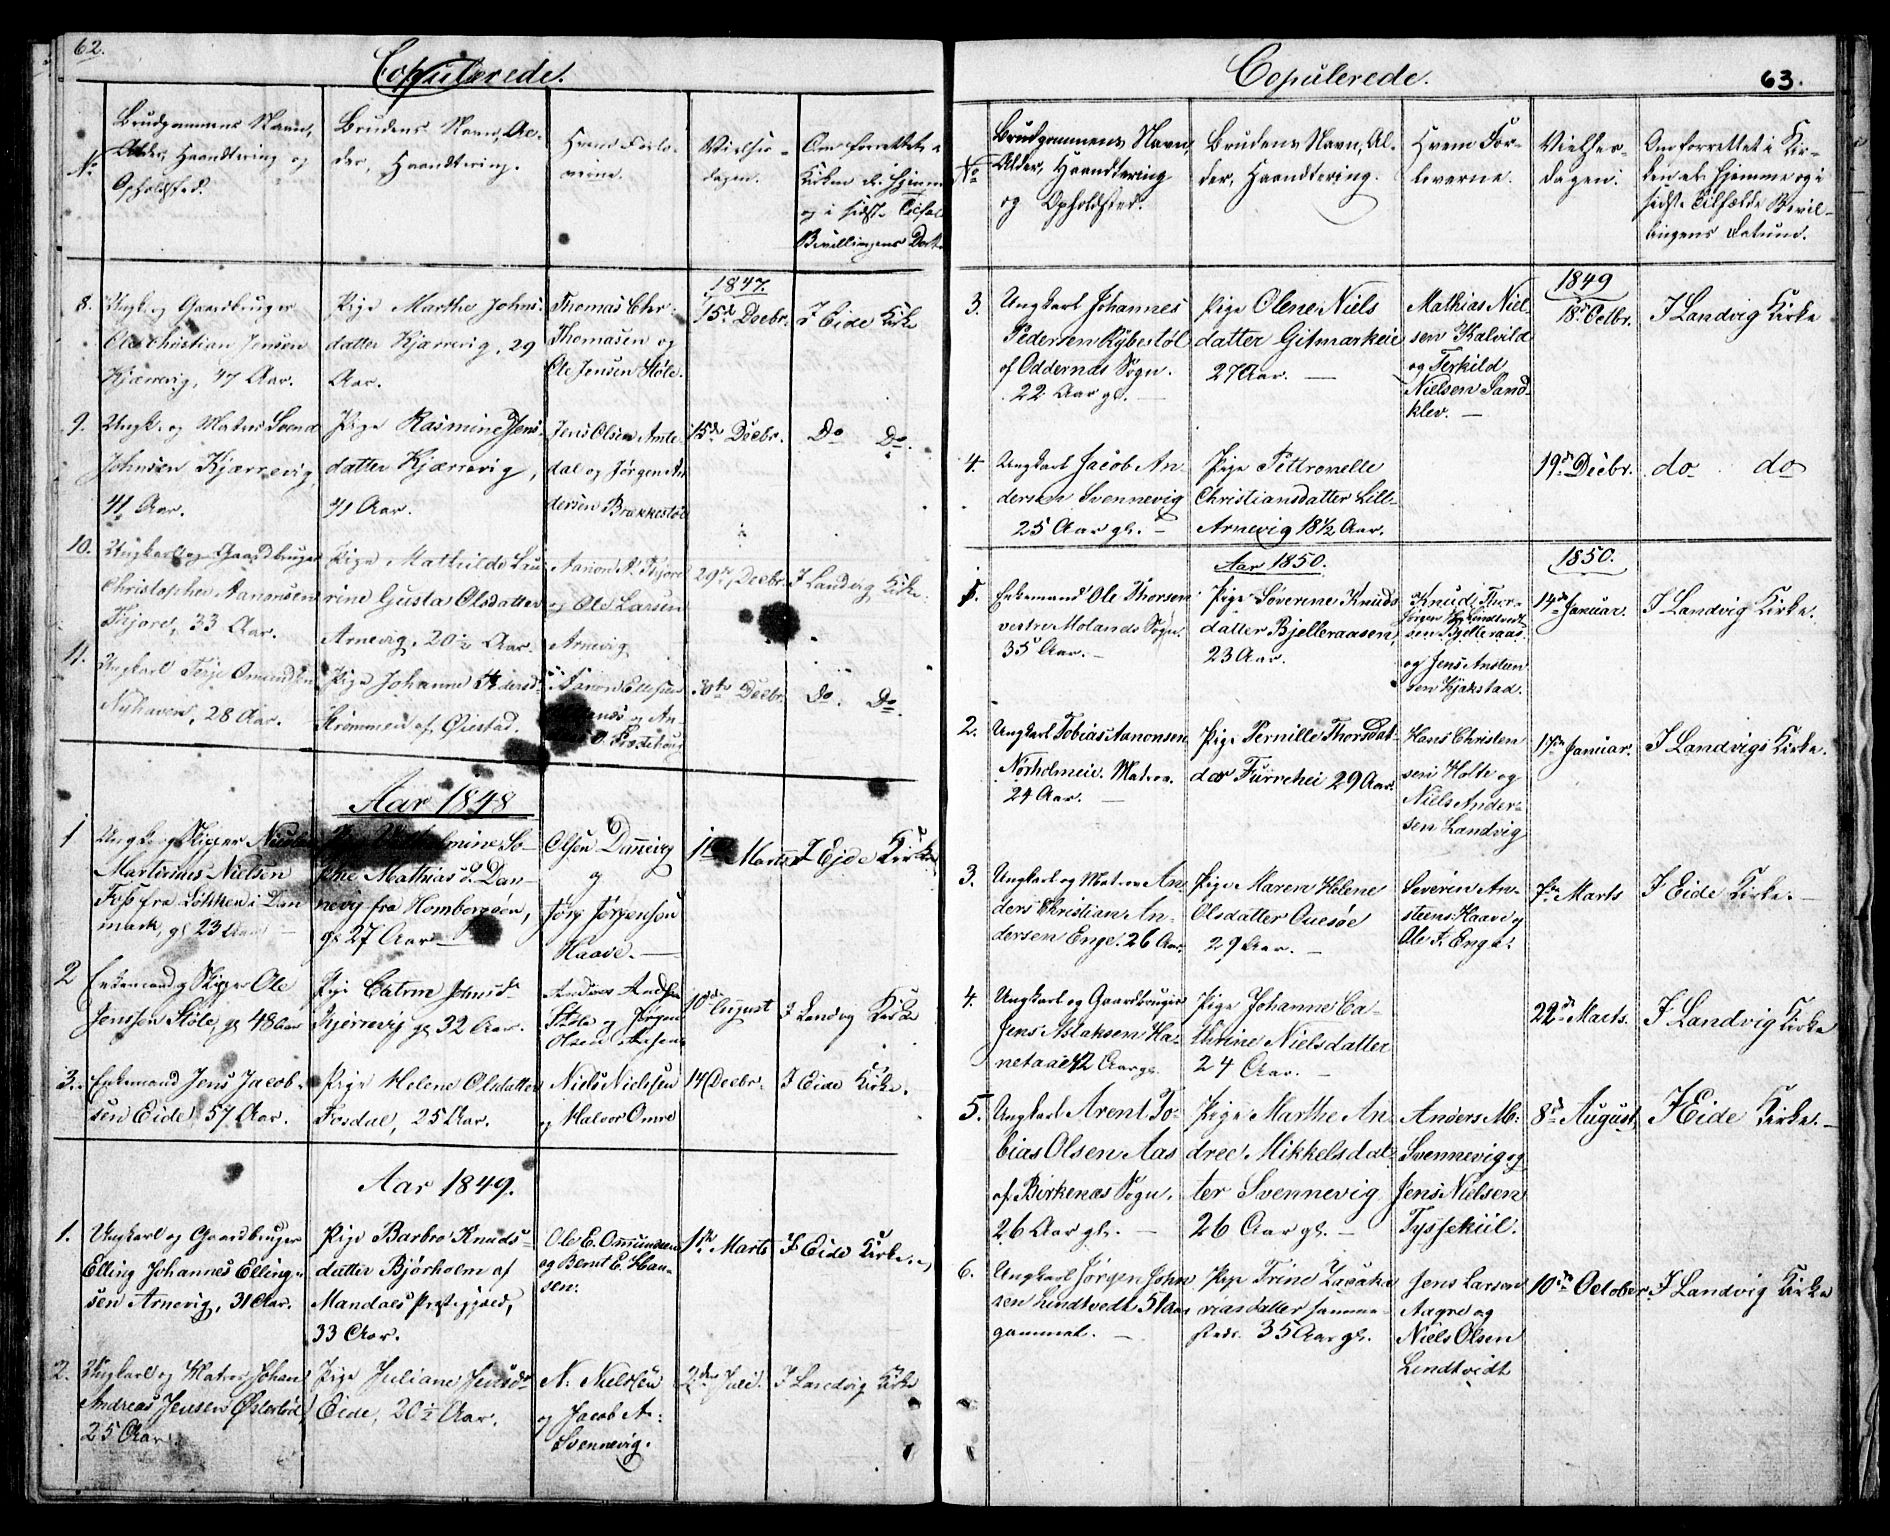 62.
Copulerede.
No
Brudgommens Navn,
Alder, Haandtering og
Opholdsted.
Brudens Navn, Al-
der, Haandtering.
Hvem Forlo-
verne.
Vielses-
dagen.
Om forrettet i
Kirken el. hjemme
og i sidste Tilfælde
Bevillingens Dat.
1847.
8.
Ungk. og Gaardbruger
Ole Christian Jensen
Kjærrevig, 47 Aar.
Pige Marthe Johns-
datter Kjærrevig, 29
Aar.
Thomas Chr:
Thomasen og
Ole Jensen Støle.
15de Decbr.
I Eide Kirke
9.
Ungk. og Matros Svend
Johnsen Kjærrevig,
41 Aar.
Pige Rasmine Jens-
datter Kjærrevig,
41 Aar.
Jens Olsen Amte-
dal og Jørgen An
dersen Brækkestøl
15de Decbr.
Do Do.
10.
Ungkarl og Gaardbruger
Christopher Aanonsen
Fjore, 33 Aar.
Pige Mathilde Lau-
rine Gusta Olsdatter
Arnevig, 20½ Aar.
Aanon N. Fjore
og Ole Larsen
Arnevig
29de Decbr.
I Landvig Kirke.
11.
Ungkarl Terje Omundsen
Nyhaven, 28 Aar.
Pige Johanne Peders d.
Strømmen af Øiestad.
Aanon Ellefsen
og An-
30te Decbr.
Do. Do.
Aar 1848
1
Ungk. og Skipper Nicolai
Martinius Nielsen
Foss fra Løkken i Dan
mark, gl 23 Aar
Wilhelmine So-
phie Mathias d. Dan-
nevig fra Homborgsøn,
gl 27 Aar
Olsen Dannevig
og
Jørg Jørgensen
Haave.
Marts
I Eide Kirke
2
Enkemand og Skipper Ole
Jenssen Støle, gl 48 Aar
Pige Catrine Johns d.
Kjerrevig gl 32 Aar.
Andreas Andsen
Støle og Jørgen
Olsen
10de August
I Landvig Kirke
3.
Enkemand Jens Jacob-
sen Eide, 57 Aar.
Pige Helene Olsdatter
Fosdal, 25 Aar.
Niels Nielsen
og Halvor Omre
14 Decbr.
I Eide Kirke.
Aar 1849.
1.
Ungkarl og Gaardbruger
Elling Johannes Elling-
sen Arnevig, 31 Aar.
Pige Barbro Knuds-
datter Bjørholm af
Mandals Præstegjæld,
33 Aar.
Ole E. Omundsen
og Bernt E. Han-
sen.
1ste Marts
I Eide Kirke.
2.
Ungkarl og Matros Johan
Andreas Jensen Østerbød
25 Aar.
Pige Juliane Jensd.
Eide, 20½ Aar.
N. Nielsen
og Jacob A:
Svennevig.
2den Juli.
I Landvig Kirke
Copulerede.
63.
No
Brudgommens Navn,
Alder, Haandtering
og Opholdsted.
Brudens Navn, Al-
der, Haandtering.
Hvem For-
loverne.
Vielses-
dagen.
Om forrettet i Kir-
ken el. hjemme og i
sidste Tilfælde Bevil-
lingens Datum.
1849
3.
Ungkarl Johannes
Pedersen Rybestøl
af Oddernæs Sogn.
22 Aar gl.
Pige Olene Niels
datter Gitmarkeie
27 Aar.
Mathias Niel-
sen Kalvild
og Terkild
Nielsen Sand-
klev.
18de Octbr.
I Landvig Kirke
4.
Ungkarl Jacob An-
dersen Svennevig
25 Aar gl.
Pige Pettronelle
Christiansdatter Lill-
Arnevig 18½ Aar.
19de Decbr.
do do
Aar 1850.
1850.
1.
Enkemand Ole Thorsen
vestre Molands Sogn.
35 Aar.
Pige Søverine Knuds
datter Bjelleraasen,
23 Aar.
Knud Thor-
sen Bjelleraas
og Jens Ansteen
sen Kjakstad.
14de Januar.
I Landvig Kirke.
2.
Ungkarl Tobias Aanonsen
Nørholmeie. Matros.
24 Aar.
Pige Pernille Thorsdat-
der Furrehei 29 Aar.
Hans Christen
sen Holte og
Niels Ander-
sen Landvig
17de Januar.
I Landvigs Kirke.
3.
Ungkarl og Matros An-
ders Christian An-
dersen Enge. 26 Aar.
Pige Maren Helene
Olsdatter Ouesøe
29 Aar.
Severin An-
steens. Haave og
Ole T. Enge.
7de Marts
I Eide Kirke.
4.
Ungkarl og Gaardbruger
Jens Aslaksen Ha-
netaae 42 Aar gl.
Pige Johanne Ca-
thrine Nielsdatter
24 Aar.
22de Marts.
I Landvig Kirke
5.
Ungkarl Arent To-
bias Olsen Aas
af Birkenæs Sogn.
26 Aar gl.
Pige Marthe An-
dree Mikkelsdat-
ter Svennevig
26 Aar gl.
Anders M:
Svennevig og
Jens Nielsen
Tyssekiil.
8de August.
I Eide Kirke.
6.
Ungkarl Jørgen John
sen Lindtvedt 51 Aar
gammel.
Pige Trine Zacha-
riasdatter samme-
steds. 35 Aar gl.
Jens Larsen
Aagre og
Niels Olsen
Lindtvidt
10de October.
I Landvig Kirke